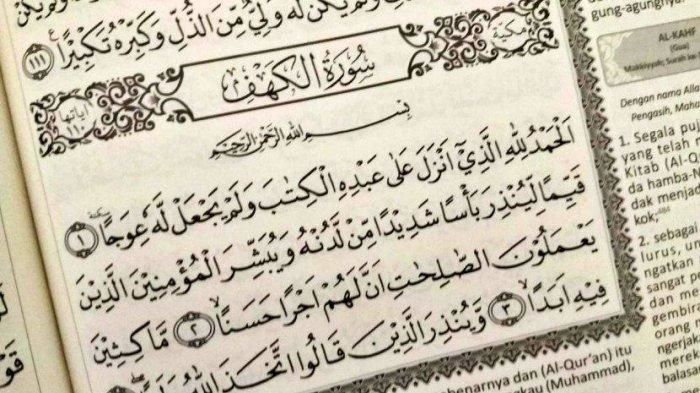 وَلَمْ يَكُنْ لَهُ وَلِيٌّ مِّنَ الذُّلِّ وَكَبِّرْهُ تَكْبِيرًا ۝١١١
مكية
سُورَةُ الْكَهْفِ
آياتها ١١٠
بِسْمِ اللهِ الرَّحْمٰنِ الرَّحِيْمِ
اَلْحَمْدُ لِلّٰهِ الَّذِيْٓ اَنْزَلَ عَلٰى عَبْدِهِ الْكِتٰبَ وَلَمْ يَجْعَلْ لَّهٗ عِوَجًا ۝١
قَيِّمًا لِّيُنْذِرَ بَأْسًا شَدِيْدًا مِّنْ لَّدُنْهُ وَيُبَشِّرَ الْمُؤْمِنِيْنَ الَّذِيْنَ
يَعْمَلُوْنَ الصّٰلِحٰتِ اَنَّ لَهُمْ اَجْرًا حَسَنًا ۝٢ مَّاكِثِيْنَ
فِيْهِ اَبَدًا ۝٣ وَّيُنْذِرَ الَّذِيْنَ قَالُوا اتَّخَذَ اللّٰهُ
gung-agungnya.
AL-KAHF
(Gua)
Makkiyyah; Surah ke-
Dengan nama Alla
Pengasih, Maha
1. Segala puj
yang telah m
Kitab (Al-Q
da hamba-N
dak menja
kok;
2. sebagai
lurus, u
ngatkan
sangat p
dan me
gembir
orang
ngerjak
mere
balasa
benarnya dan (Al-Qur'an) itu
gkau (Muhammad),